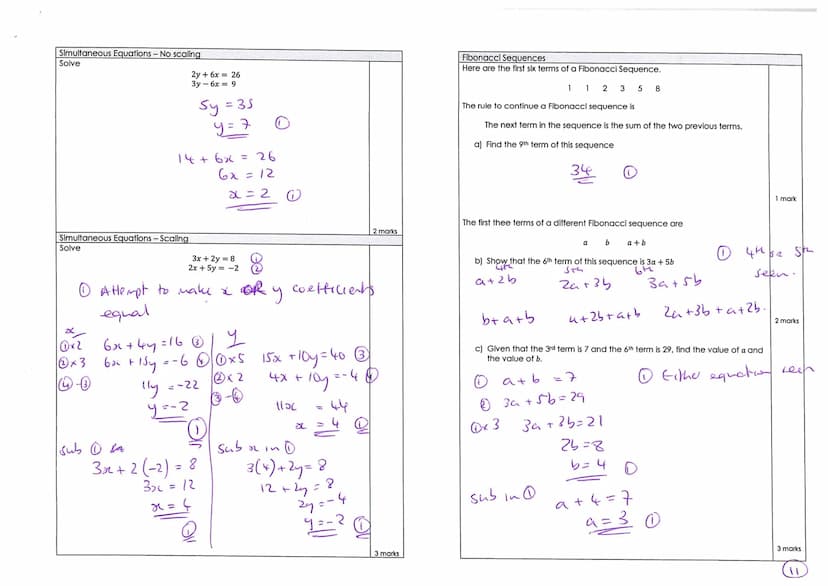 Simultaneous Equations – No scaling
Solve
2y + 6x = 26
3y − 6x = 9
5y = 35
y = 7 ①
14 + 6x = 26
6x = 12
x = 2 ①
2 marks
Simultaneous Equations – Scaling
Solve
3x + 2y = 8 ①
2x + 5y = −2 ②
① Attempt to make x OR y coefficients
equal
x
①×2 6x + 4y = 16 ③
②×3 6x + 15y = −6 ④
④−③ 11y = −22
y = −2
①
sub ① in
3x + 2(−2) = 8
3x = 12
x = 4
①
y
①×5 15x + 10y = 40 ③
②×2 4x + 10y = −4 ④
③−④
11x = 44
x = 4 ①
Sub x in ①
3(4) + 2y = 8
12 + 2y = 8
2y = −4
y = −2 ①
3 marks
Fibonacci Sequences
Here are the first six terms of a Fibonacci Sequence.
1 1 2 3 5 8
The rule to continue a Fibonacci sequence is
The next term in the sequence is the sum of the two previous terms.
a) Find the 9th term of this sequence
34 ①
1 mark
The first thee terms of a different Fibonacci sequence are
a b a + b
b) Show that the 6th term of this sequence is 3a + 5b
① 4th 5th
seen.
4th 5th 6th
a + 2b 2a + 3b 3a + 5b
b + a + b a + 2b + a + b 2a + 3b + a + 2b.
2 marks
c) Given that the 3rd term is 7 and the 6th term is 29, find the value of a and
the value of b.
① a + b = 7 ① Either equation seen
② 3a + 5b = 29
①×3 3a + 3b = 21
2b = 8
b = 4 ①
sub in ① a + 4 = 7
a = 3 ①
3 marks
11